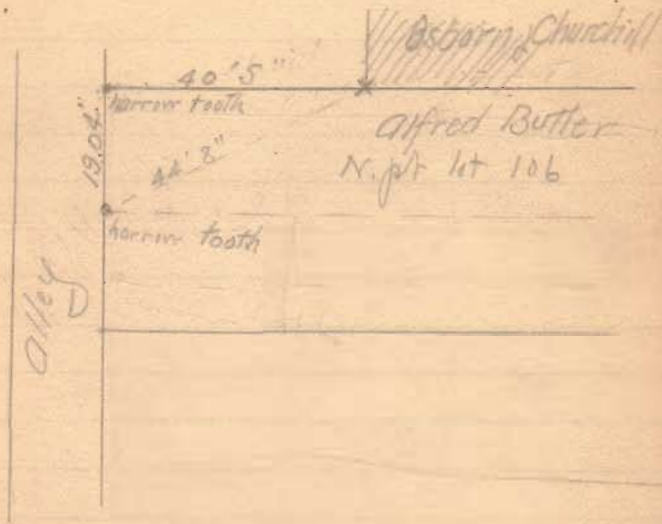 Osborn & Churchill
40'5"
harrow tooth
Alfred Butler
N. pt lot 106
19.04"
44'8"
harrow tooth
Alley